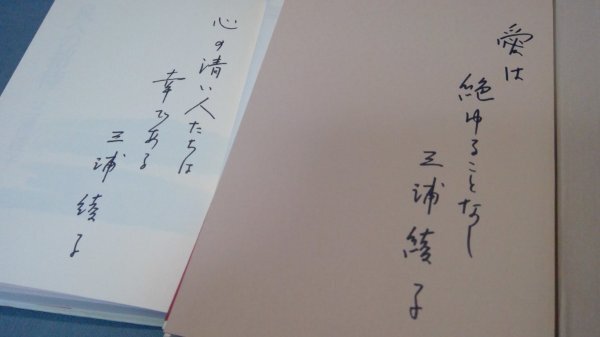 心の清い人たちは
幸である
三浦綾子
愛は
絶ゆることなし
三浦綾子